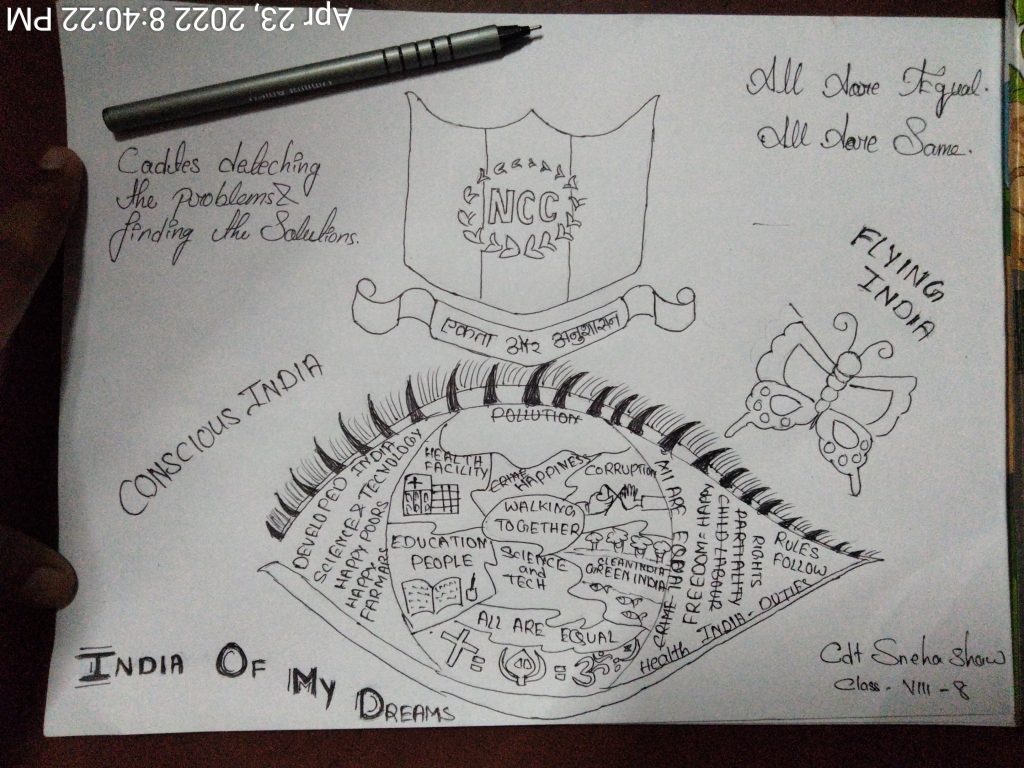 Apr 23, 2022 8:40:22 PM
Cadtes detecching
the problems &
finding the Solutions.
All Aare Equal.
All Aare Same.
NCC
एकता और अनुशासन
FLYING
INDIA
CONSCIOUS INDIA
DEVELOPED INDIA
SCIENCE & TECNOLOGY
HAPPY POORS
HAPPY
FARMARS
POLLUTION
HEALTH
FACILITY
CRIME
HAPPINESS
CORRUPTION
WALKING
TOGETHER
EDUCATION
PEOPLE
SCIENCE
and
TECH
CLEAN INDIA
GREEN INDIA
ALL ARE EQUAL
= =
ARE EQUAL
CRIME
FREEDOM = HAPPY
CHILD LABOUR
PARTIALITY
RIGHTS
RULES
FOLLOW
Health
INDIA - DUTIES
INDIA OF MY DREAMS
Cdt Sneha Shaw
Class - VIII - 8